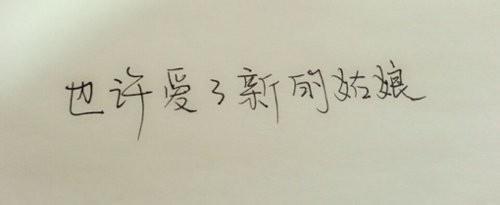 也许爱了新的姑娘